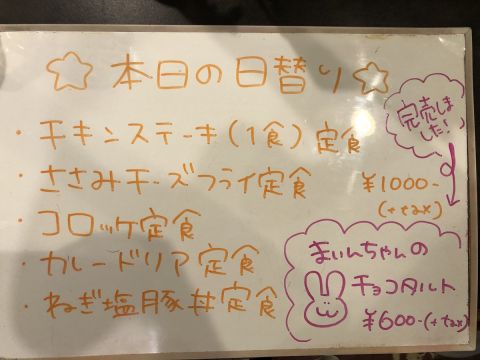 ☆本日の日替り☆
完売しま
した!
・チキンステーキ(1食)定食
・ささみチーズフライ定食
¥1000-
(+tax)
・コロッケ定食
・カレードリア定食
・ねぎ塩豚丼定食
まいんちゃんの
チョコタルト
¥600-(+tax)